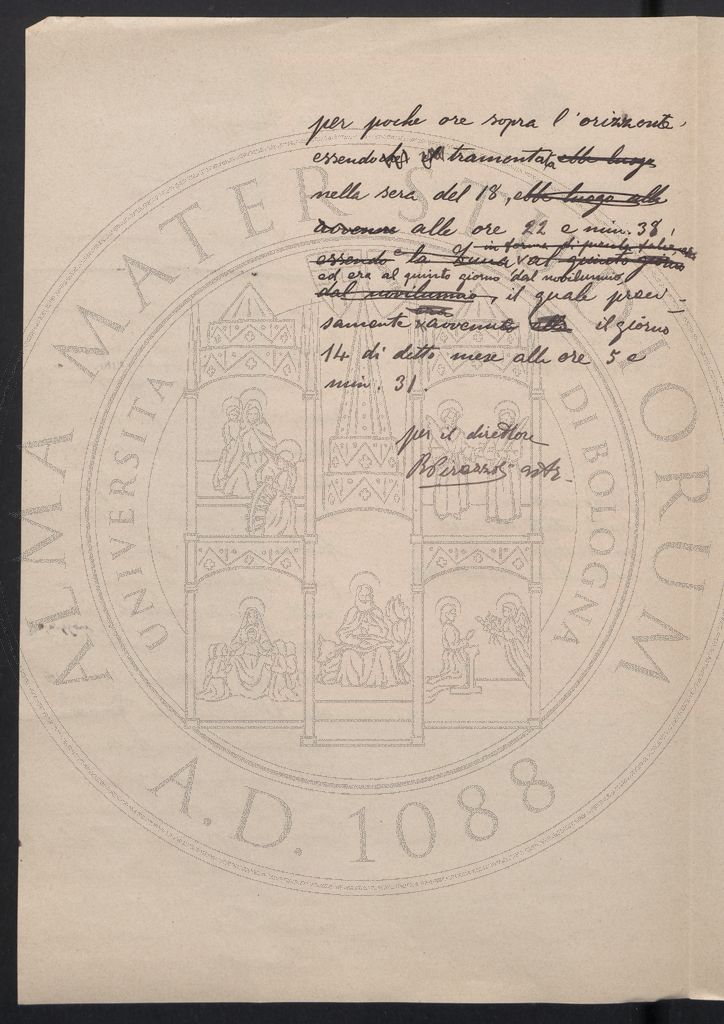 per poche ore sopra l'orizzonte,
essendo tramontata ebbe luogo
nella sera del 18, ebbe luogo alle
avvenne alle ore 22 e min. 38,
in forma di
essendo la Luna al quinto giorno
ed era al quinto giorno dal novilunio,
dal novilunio, il quale preci-
samente avvenne il giorno
14 di detto mese alle ore 5 e
min. 31.
per il direttore
ALMA MATER STUDIORUM
UNIVERSITA DI BOLOGNA
A.D. 1088